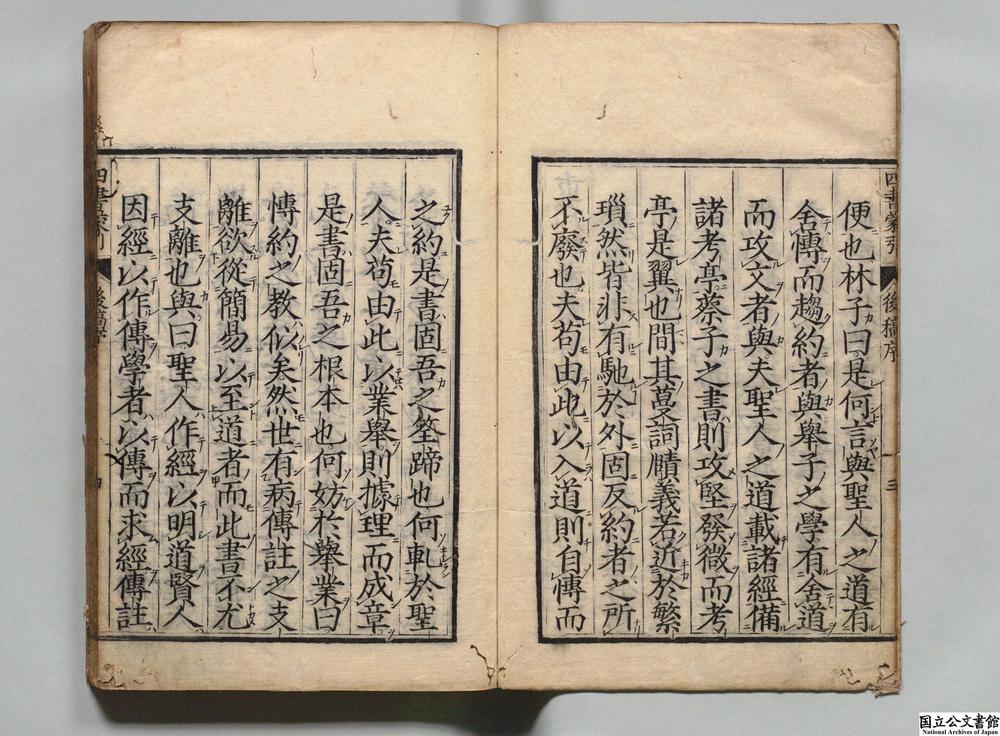 便也林子曰是何言與聖人之道有
舍博而趨約者與舉子之學有舍道
而攻文者與夫聖人之道載諸經備
諸考亭蔡子之書則攻堅發微而考
亭是翼也間其蔓詞賾義若近於繁
瑣然皆非有馳於外固反約者之所
不廢也夫苟由此以入道則自博而
四書蒙引
後稿序
三
之約是書固吾之筌蹄也何軋於聖
人夫苟由此以業舉則據理而成章
是書固吾之根本也何妨於舉業曰
博約之教似矣然世有病傳註之支
離欲從簡易以至道者而此書不尤
支離也與曰聖人作經以明道賢人
因經以作傳學者以傳而求經傳註
四書蒙引
後稿序
国立公文書館
National Archives of Japan